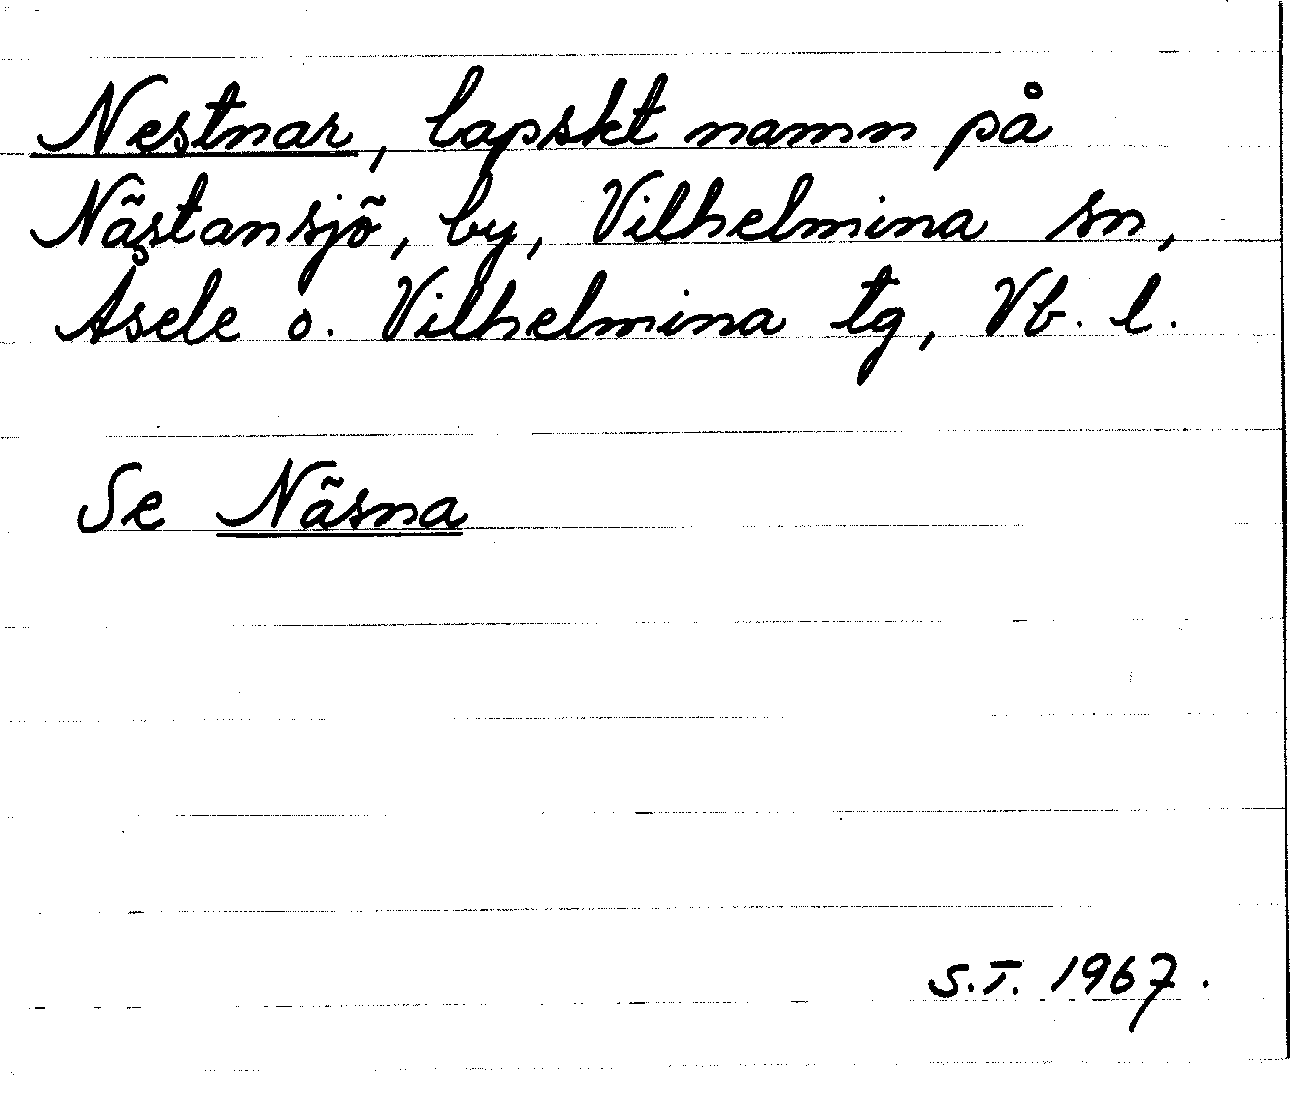 Nestnar, lapskt namn på
Nästansjö, by, Vilhelmina sn,
Åsele o. Vilhelmina tg, Vb. l.
Se Näsna
S.T. 1967.